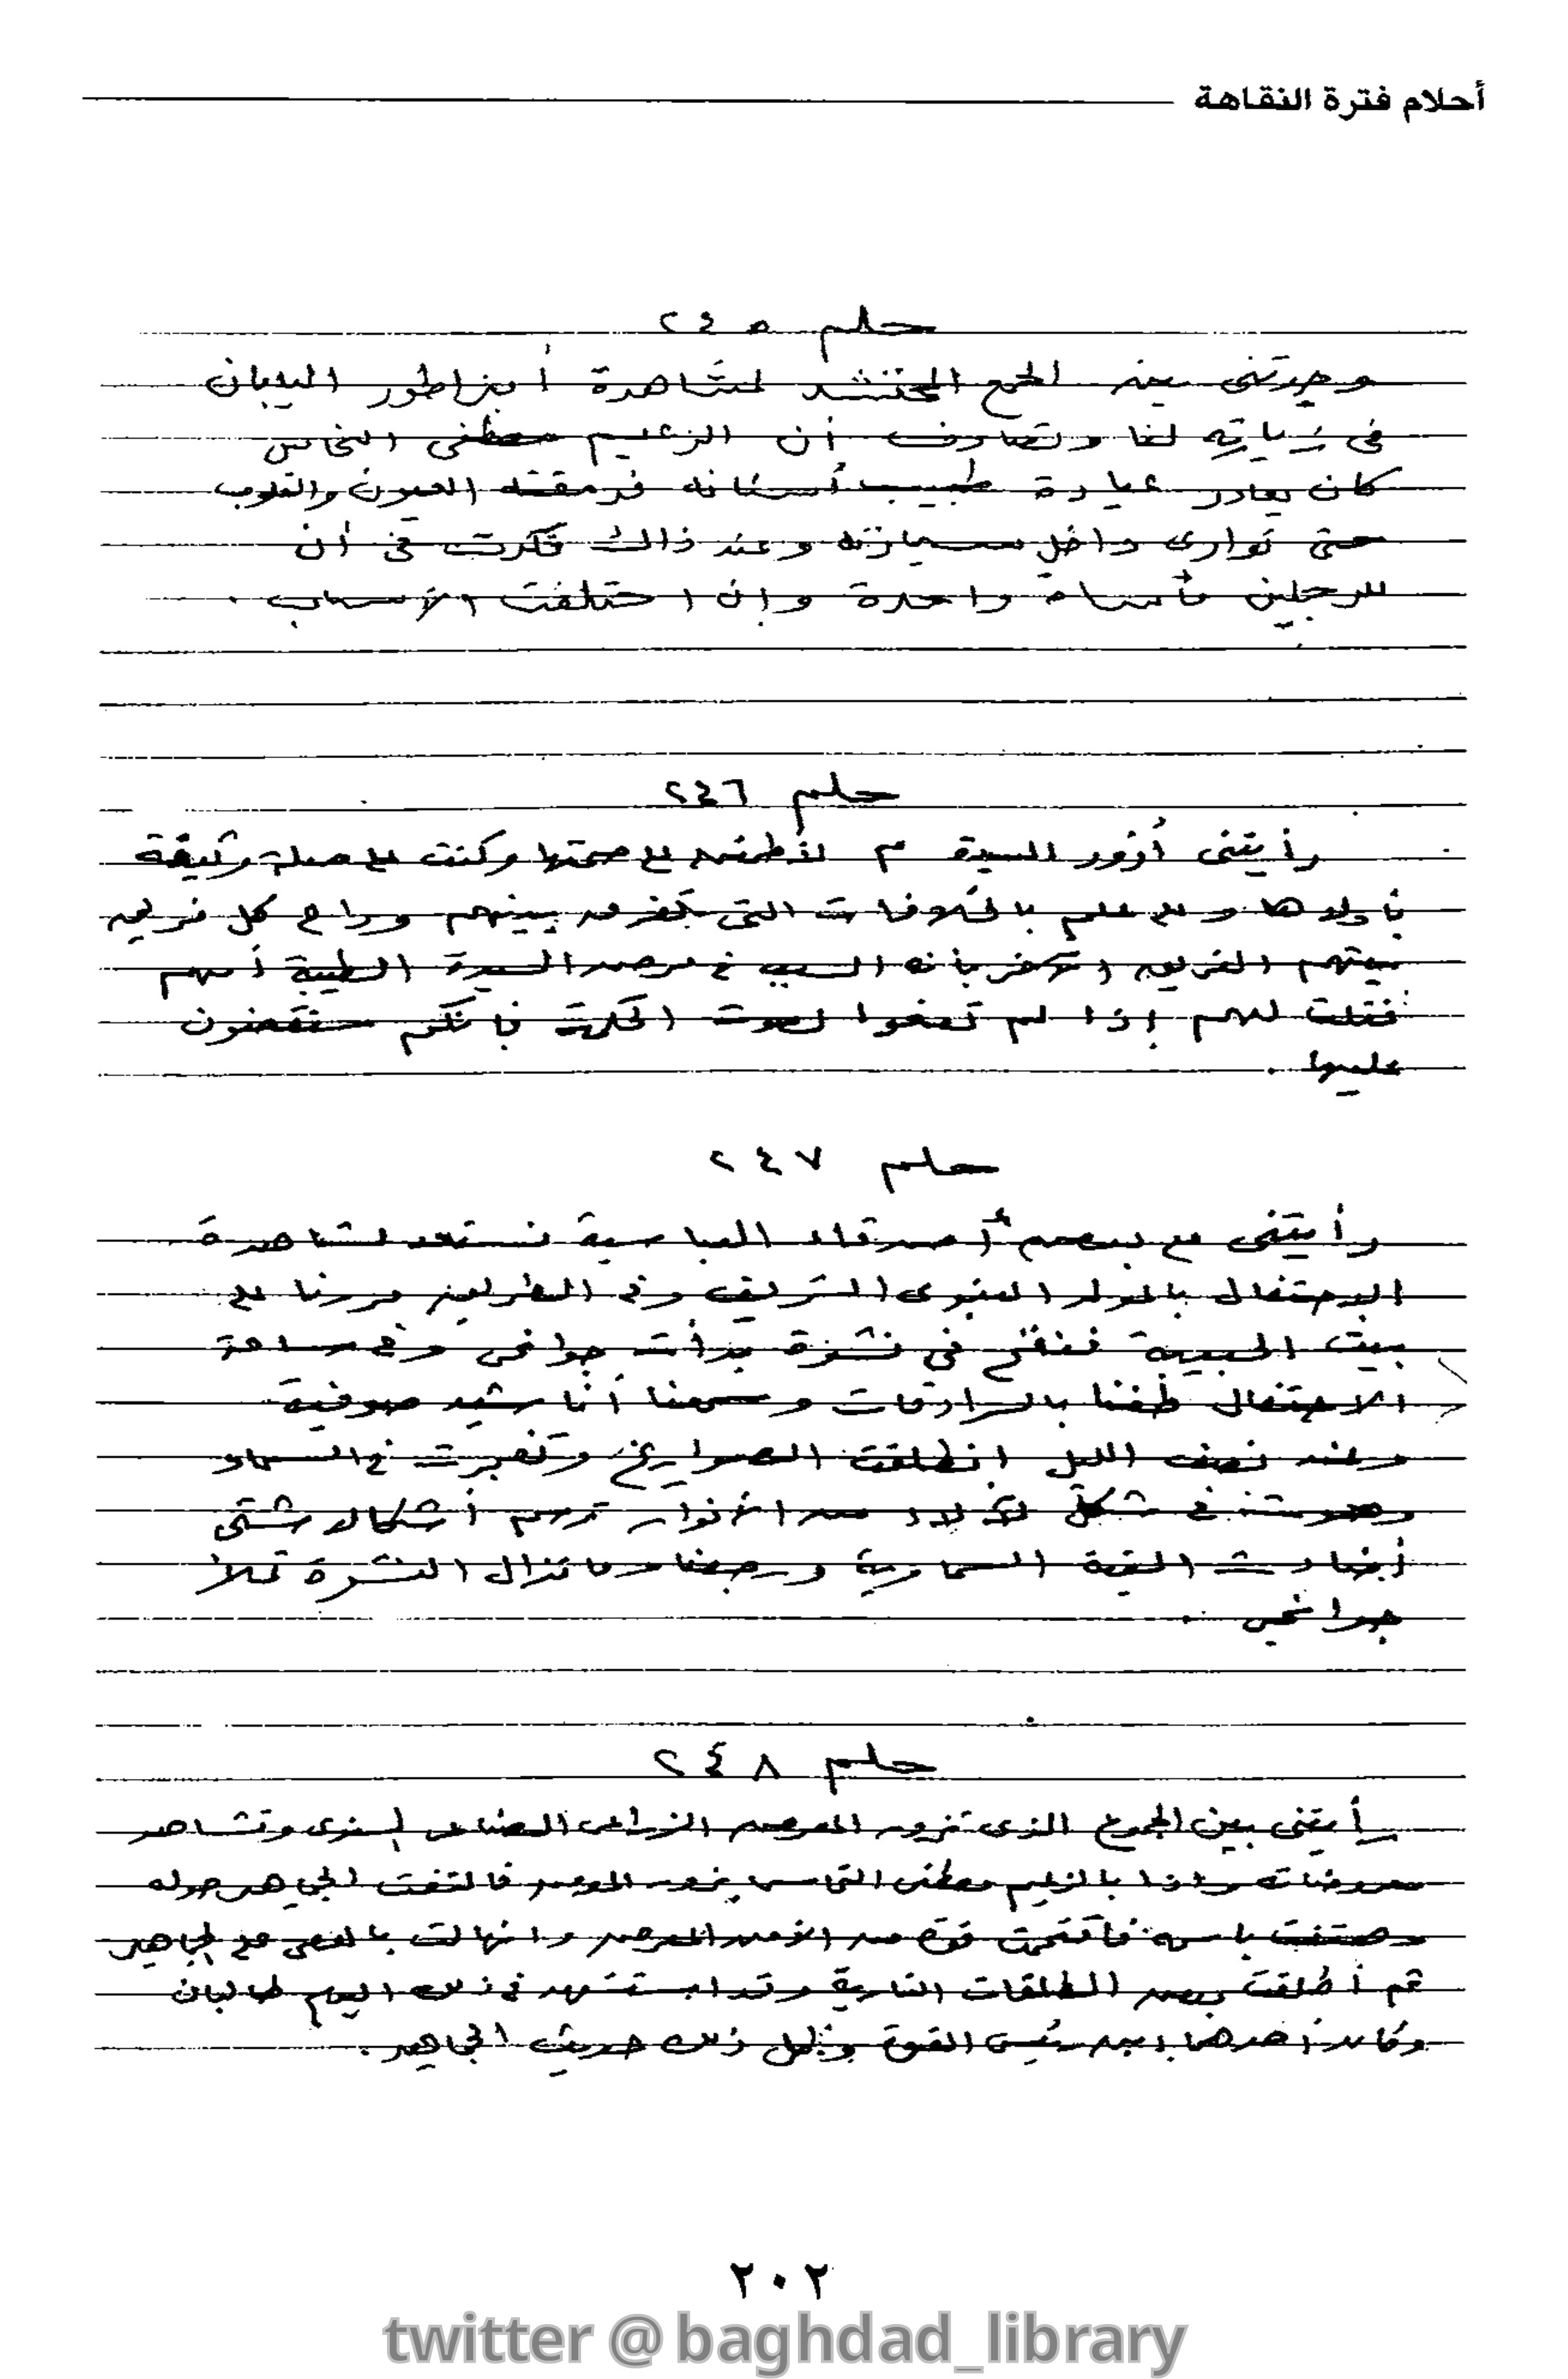 أحلام فترة النقاهة
حلم ٢٤٥
وجدتنى بين الجمع المحتشد لمشاهدة أمبراطور اليابان
فى زيارته لنا وتصادف أن الزعيم مصطفى النحاس
كان يغادر عيادة طبيب أسنانه فرمقته العيون والقلوب
حتى توارى داخل سيارته وعند ذالك فكرت فى أن
للرجلين مأساة واحدة وإن اختلفت الأسباب .
حلم ٢٤٦
رأيتنى أزور السيدة م لأطمئن على صحتها وكنت على صلة وثيقة
بأولادها وعلى علم بالخلافات التى تفرق بينهم وراح كل فريق
يتهم الفريق الآخر بأنه السبب فى مرض السيدة الطيبة أمهم
فقلت لهم إذا لم تصغوا لصوت الحكمة فإنكم ستقضون
عليها .
حلم ٢٤٧
رأيتنى مع بعض أصدقاء العباسية نستعد لمشاهدة
الاحتفال بالمولد النبوى الشريف وفى الطريق مررنا على
بيت الحبيبة فنفخ فى نشوة بدأت جوانحى وفى ساحة
الاحتفال طفنا بالسرادقات وسمعنا أناشيد صوفية
وعند نصف الليل انطلقت الصواريخ وتفجرت فى السماء
وهوت فى شكل لآلاء من الأنوار ترسم أشكالا شتى
أضاءت القبة السماوية ورجعنا وما تزال النشوة تملأ
جوانحى .
حلم ٢٤٨
رأيتنى بين الجموع التى تزور المعرض الزراعى الصناعى السنوى وتشاهد
معروضاته وإذا بالزعيم مصطفى النحاس يزور المعرض فالتفت الجماهير حوله
وهتفت باسمه فاقتحمت قوة من الأمن المعرض وانهالت بالعصى على الجماهير
ثم أطلقت بعض الطلقات النارية وقد استشهد فى ذلك اليوم طالبان
وكان أحدهما ابن رئيس القوة وظل ذلك حديث الجماهير .
٢٠٢
twitter @baghdad_library